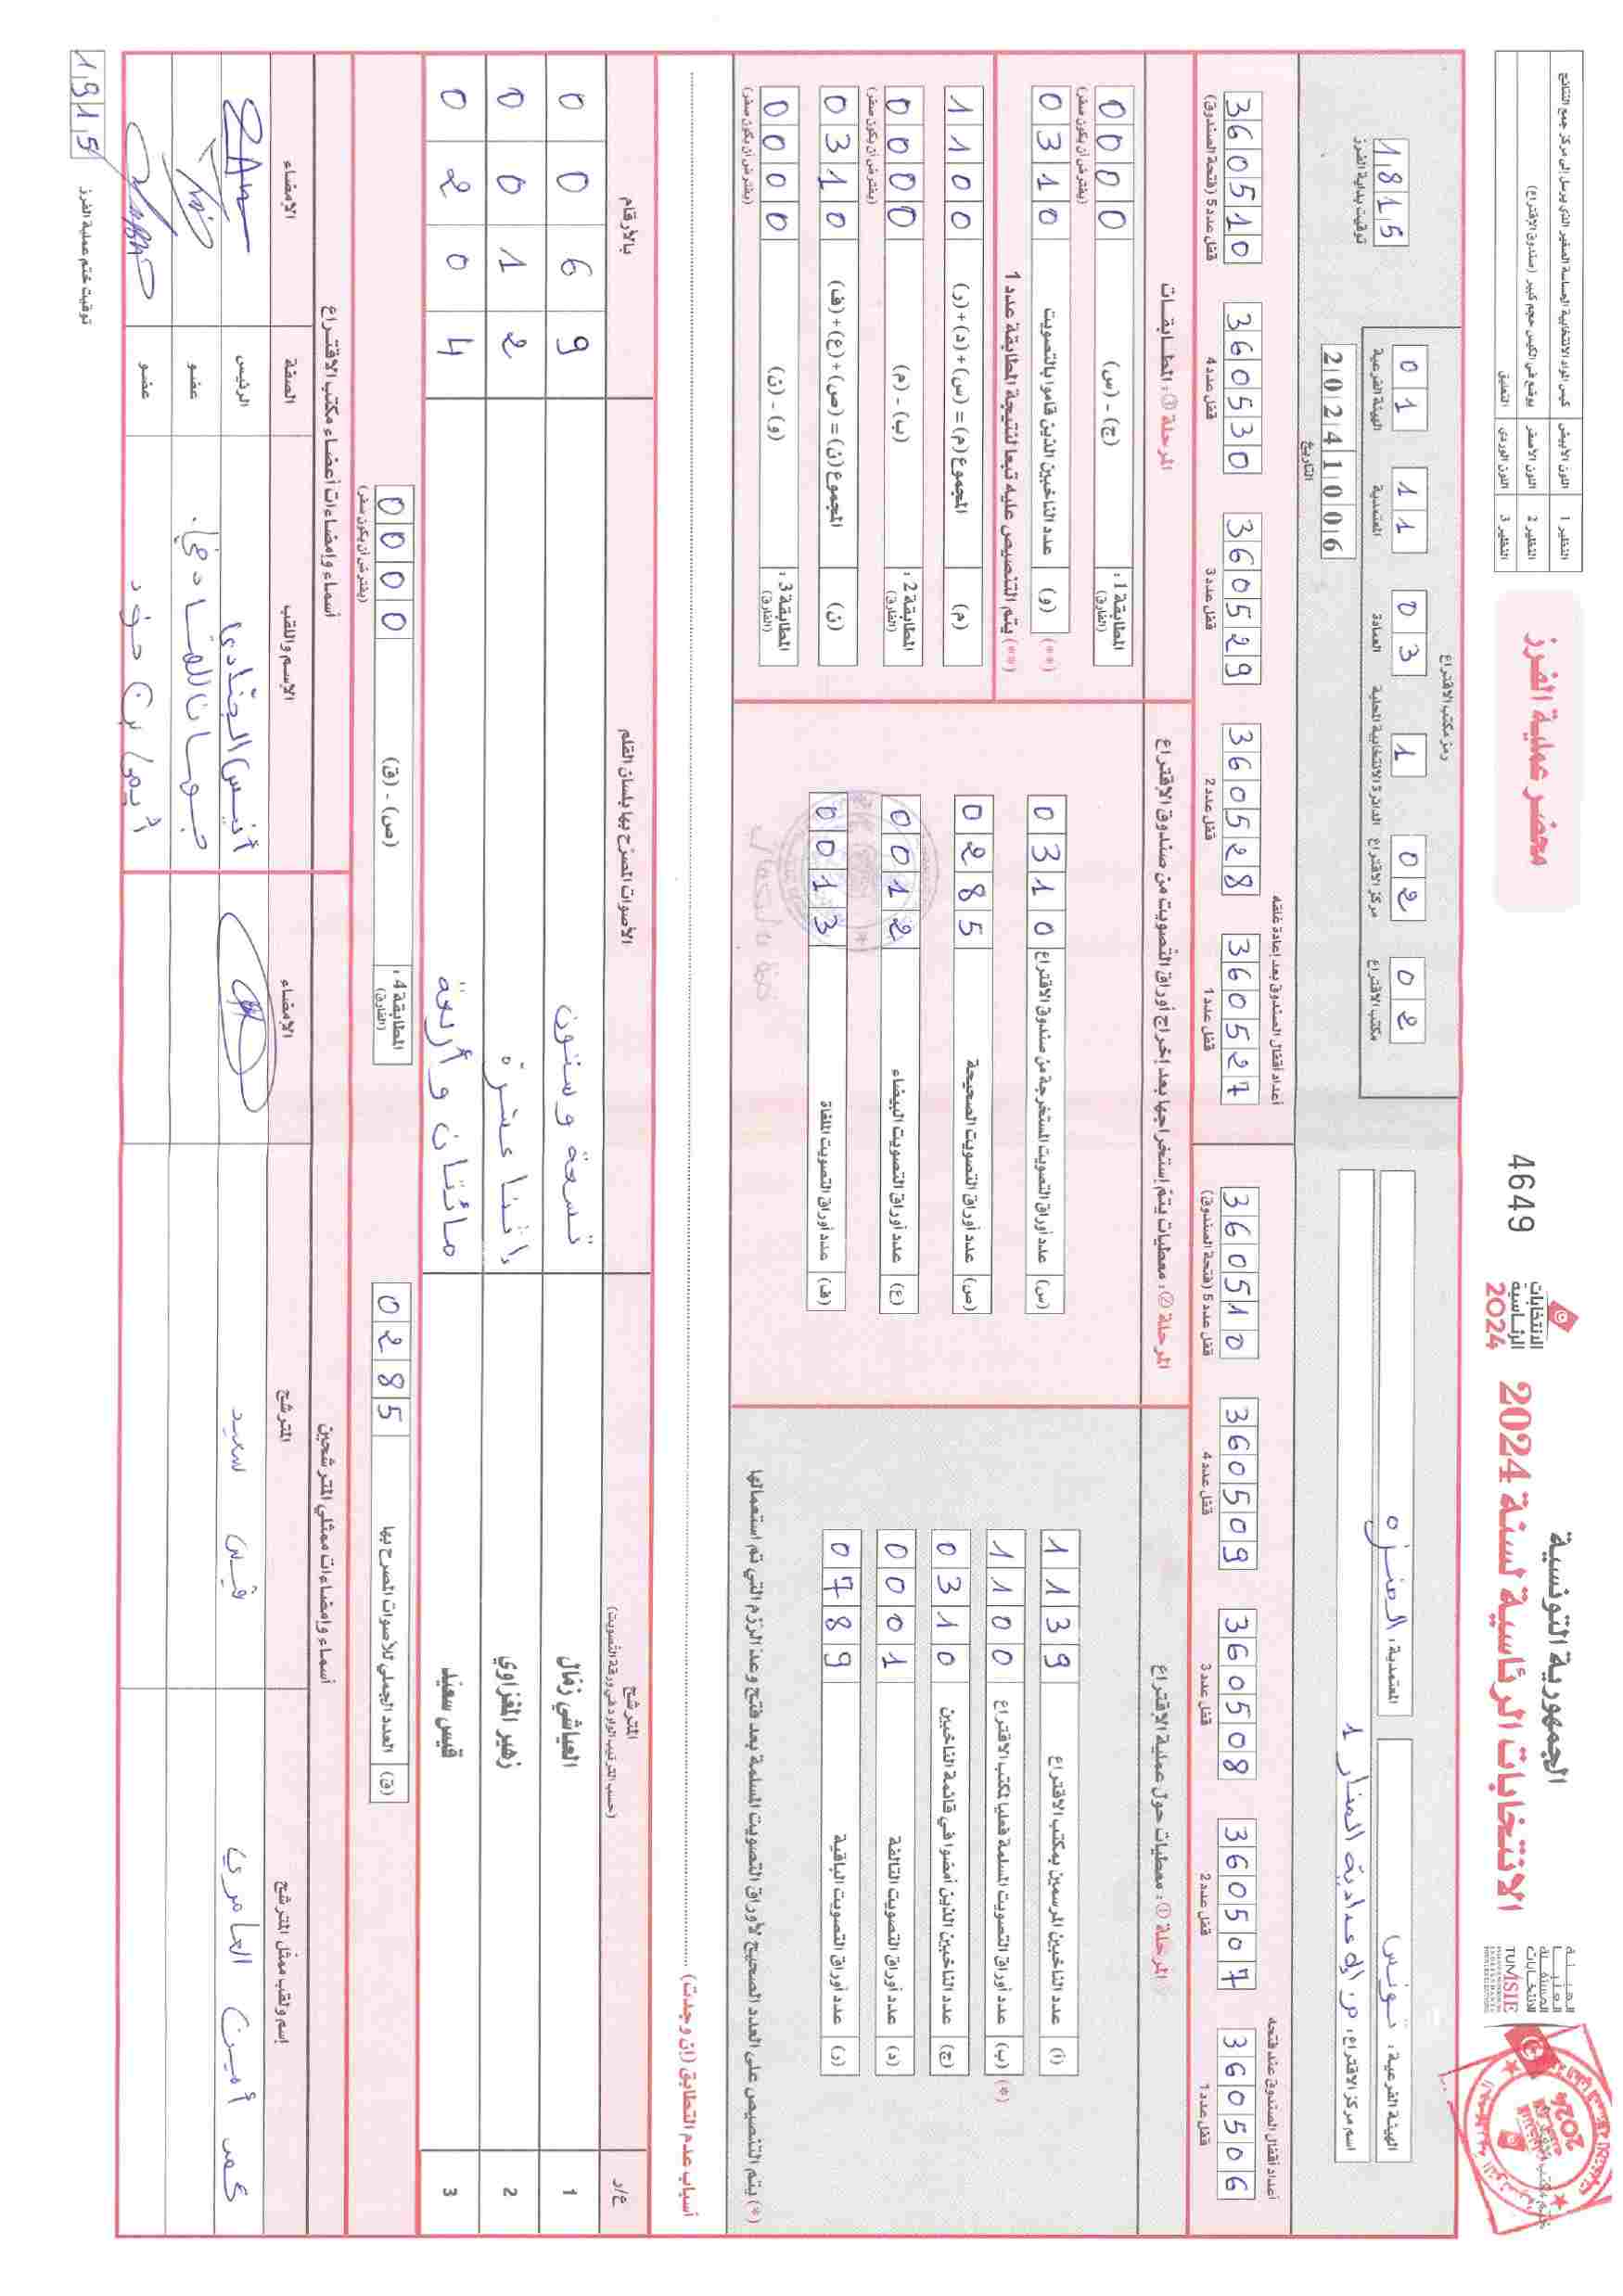 الجمهورية التونسية
الانتخابات الرئاسية لسنة 2024
الانتخابات الرئاسية 2024
4649
محضر عملية الفرز
النظير 1 اللون الأبيض كيس المواد الانتخابية الحساسة الصغير الذي يرسل إلى مركز جمع النتائج
النظير 2 اللون الأصفر يوضع في الكيس حجم كبير (صندوق الإقتراع)
النظير 3 اللون الوردي التعليق
الهيئة العليا المستقلة للانتخابات
TUNISIE
الهيئة الفرعية: تونس
المعتمدية: المنزه
اسم مركز الاقتراع: م. إعدادية المنار 1
رمز مكتب الاقتراع
01 11 03 1 02 02
الهيئة الفرعية المعتمدية العمادة الدائرة الانتخابية المحلية مركز الاقتراع مكتب الاقتراع
20241006
التاريخ
1815
توقيت بداية الفرز
أعداد أقفال الصندوق عند فتحه
360506 قفل عدد 1
360507 قفل عدد 2
360508 قفل عدد 3
360509 قفل عدد 4
360510 قفل عدد 5 (فتحة الصندوق)
أعداد أقفال الصندوق بعد إعادة غلقه
360527 قفل عدد 1
360528 قفل عدد 2
360529 قفل عدد 3
360530 قفل عدد 4
360510 قفل عدد 5 (فتحة الصندوق)
المرحلة ①: معطيات حول عملية الاقتراع
(أ) عدد الناخبين المرسمين بمكتب الاقتراع 1139
(*) (ب) عدد أوراق التصويت المسلمة فعليا لمكتب الاقتراع 1100
(ج) عدد الناخبين الذين أمضوا في قائمة الناخبين 0310
(د) عدد أوراق التصويت التالفة 0001
(ر) عدد أوراق التصويت الباقية 0789
(*) يتم التنصيص على العدد الصحيح لأوراق التصويت المسلمة بعد فتح وعد الرزم التي تم استعمالها
المرحلة ②: معطيات يتم إستخراجها بعد إخراج أوراق التصويت من صندوق الإقتراع
(س) عدد أوراق التصويت المستخرجة من صندوق الاقتراع 0310
(ص) عدد أوراق التصويت الصحيحة 0285
(ع) عدد أوراق التصويت البيضاء 0012
(ف) عدد أوراق التصويت الملغاة 0013
المرحلة ③: المطابقات
المطابقة 1: (الفارق) (ج) - (س) 0000
(يفترض أن يكون صفر)
(**) (و) عدد الناخبين الذين قاموا بالتصويت 0310
(**) يتم التنصيص عليه تبعا لنتيجة المطابقة عدد 1
(م) المجموع (م) = (س)+(د)+(ر) 1100
المطابقة 2: (الفارق) (ب) - (م) 0000
(يفترض أن يكون صفر)
(ن) المجموع (ن) = (ص)+(ع)+(ف) 0310
المطابقة 3: (الفارق) (و) - (ن) 0000
(يفترض أن يكون صفر)
أسباب عدم التطابق (إن وجدت)
ع/د المترشح (حسب الترتيب الوارد في ورقة التصويت) الأصوات المصرّح بها بلسان القلم بالأرقام
1 العياشي زمال تسعة وستون 0069
2 زهير المغزاوي اثنا عشرة 0012
3 قيس سعيد مائتان وأربعة 0204
(ق) العدد الجملي للأصوات المصرح بها 0285
المطابقة 4: (الفارق) (ص) - (ق) 0000
(يفترض أن يكون صفر)
أسماء وإمضاءات ممثلي المترشحين
إسم ولقب ممثل المترشح المترشح الإمضاء
محمد أمين العامري قيس سعيد
أسماء وإمضاءات أعضاء مكتب الاقتراع
الإسم واللقب الصفة الإمضاء
الرئيس
عضو
عضو
1915
توقيت ختم عملية الفرز